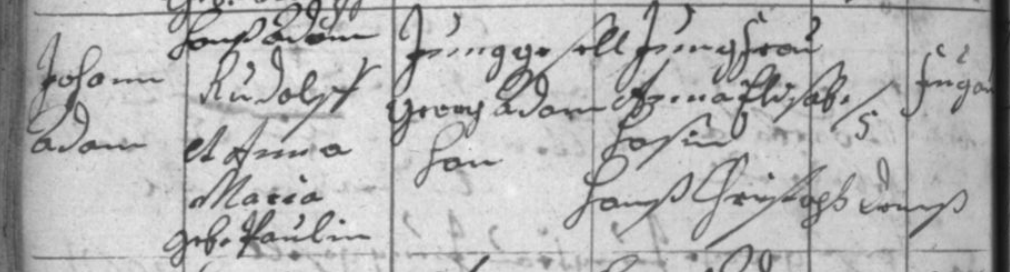 Johann
Adam
Hanß Adam
Rudolph
et Anna
Maria
geb. Paulin
Junggesell
Georg Adam
Han
Jungfrau
Anna Elisab.
Hasin
Hanß Christoph
5